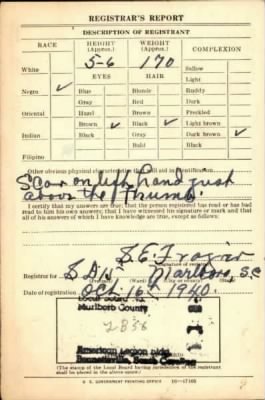 REGISTRAR'S REPORT
DESCRIPTION OF REGISTRANT
RACE HEIGHT (Approx.) WEIGHT (Approx.) COMPLEXION
5-6 170
White Sallow
EYES HAIR Light
Negro ✓ Blue Blonde Ruddy
Gray Red Dark
Oriental Hazel Brown Freckled
Brown ✓ Black ✓ Light brown
Indian Black Gray Dark brown ✓
Bald Black
Filipino
Other obvious physical characteristics that will aid in identification
Scar on left hand just
above the Thumb.
I certify that my answers are true; that the person registered has read or has had
read to him his own answers; that I have witnessed his signature or mark and that
all of his answers of which I have knowledge are true, except as follows:
S. E. Frazier
Registrar for Marlboro, S.C.
Date of registration Oct. 16 1940.
Marlboro County
(The stamp of the Local Board having jurisdiction of the registrant
shall be placed in the above space.)
U. S. GOVERNMENT PRINTING OFFICE